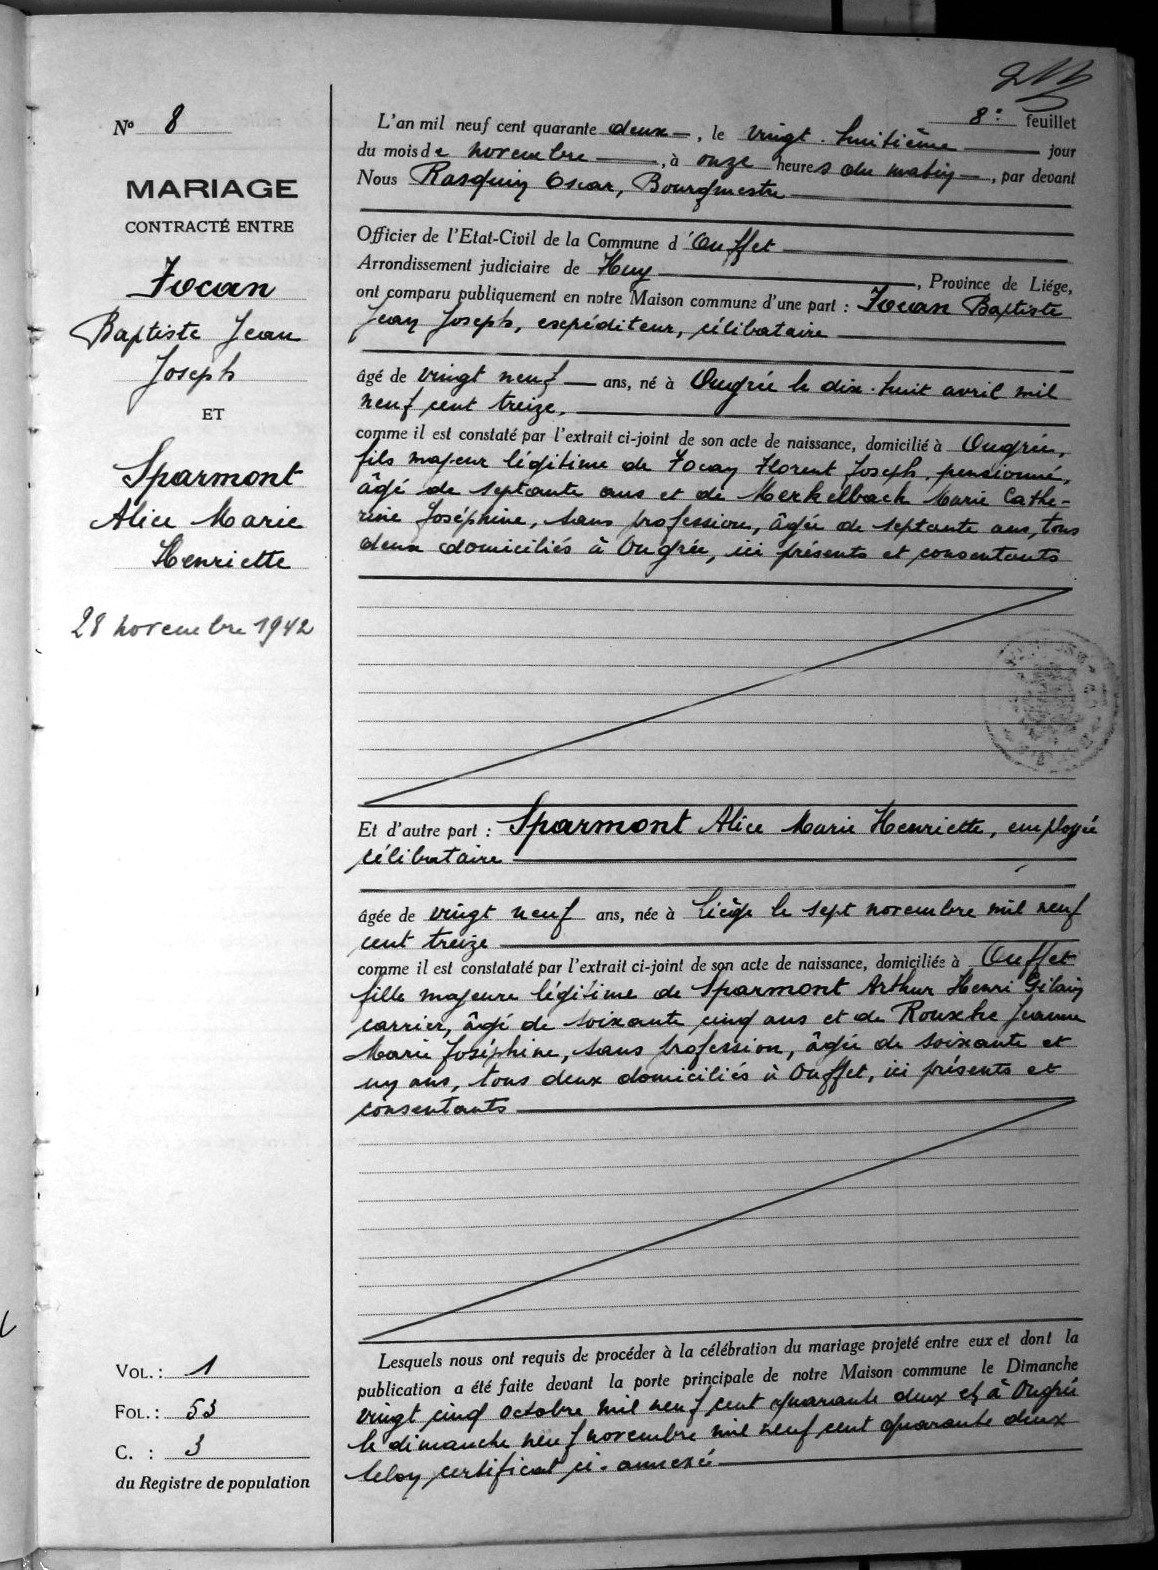 8e feuillet
N° 8
MARIAGE
CONTRACTÉ ENTRE
Focan
Baptiste Jean
Joseph
ET
Sparmont
Alice Marie
Henriette
28 novembre 1942
VOL. : 1
FOL. : 53
C. : 3
du Registre de population
L'an mil neuf cent quarante deux, le vingt-huitième jour
du mois de novembre, à onze heures du matin, par devant
Nous Rasquin Oscar, Bourgmestre
Officier de l'Etat-Civil de la Commune d'Ouffet
Arrondissement judiciaire de Huy, Province de Liége,
ont comparu publiquement en notre Maison commune d'une part : Focan Baptiste
Jean Joseph, expéditeur, célibataire
âgé de vingt neuf ans, né à Ougrée le dix-huit avril mil
neuf cent treize,
comme il est constaté par l'extrait ci-joint de son acte de naissance, domicilié à Ougrée,
fils majeur légitime de Focan Florent Joseph, pensionné,
âgé de septante ans et de Merkelbach Marie Cathe-
rine Joséphine, sans profession, âgée de septante ans, tous
deux domiciliés à Ougrée, ici présents et consentants
Et d'autre part : Sparmont Alice Marie Henriette, employée
célibataire
âgée de vingt neuf ans, née à Liège le sept novembre mil neuf
cent treize
comme il est constataté par l'extrait ci-joint de son acte de naissance, domiciliée à Ouffet
fille majeure légitime de Sparmont Arthur Henri Gilain
carrier, âgé de soixante cinq ans et de Rouxhe Jeanne
Marie Joséphine, sans profession, âgée de soixante et
un ans, tous deux domiciliés à Ouffet, ici présents et
consentants
Lesquels nous ont requis de procéder à la célébration du mariage projeté entre eux et dont la
publication a été faite devant la porte principale de notre Maison commune le Dimanche
vingt cinq octobre mil neuf cent quarante deux et à Ougrée
le dimanche neuf novembre mil neuf cent quarante deux
selon certificat ci-annexé